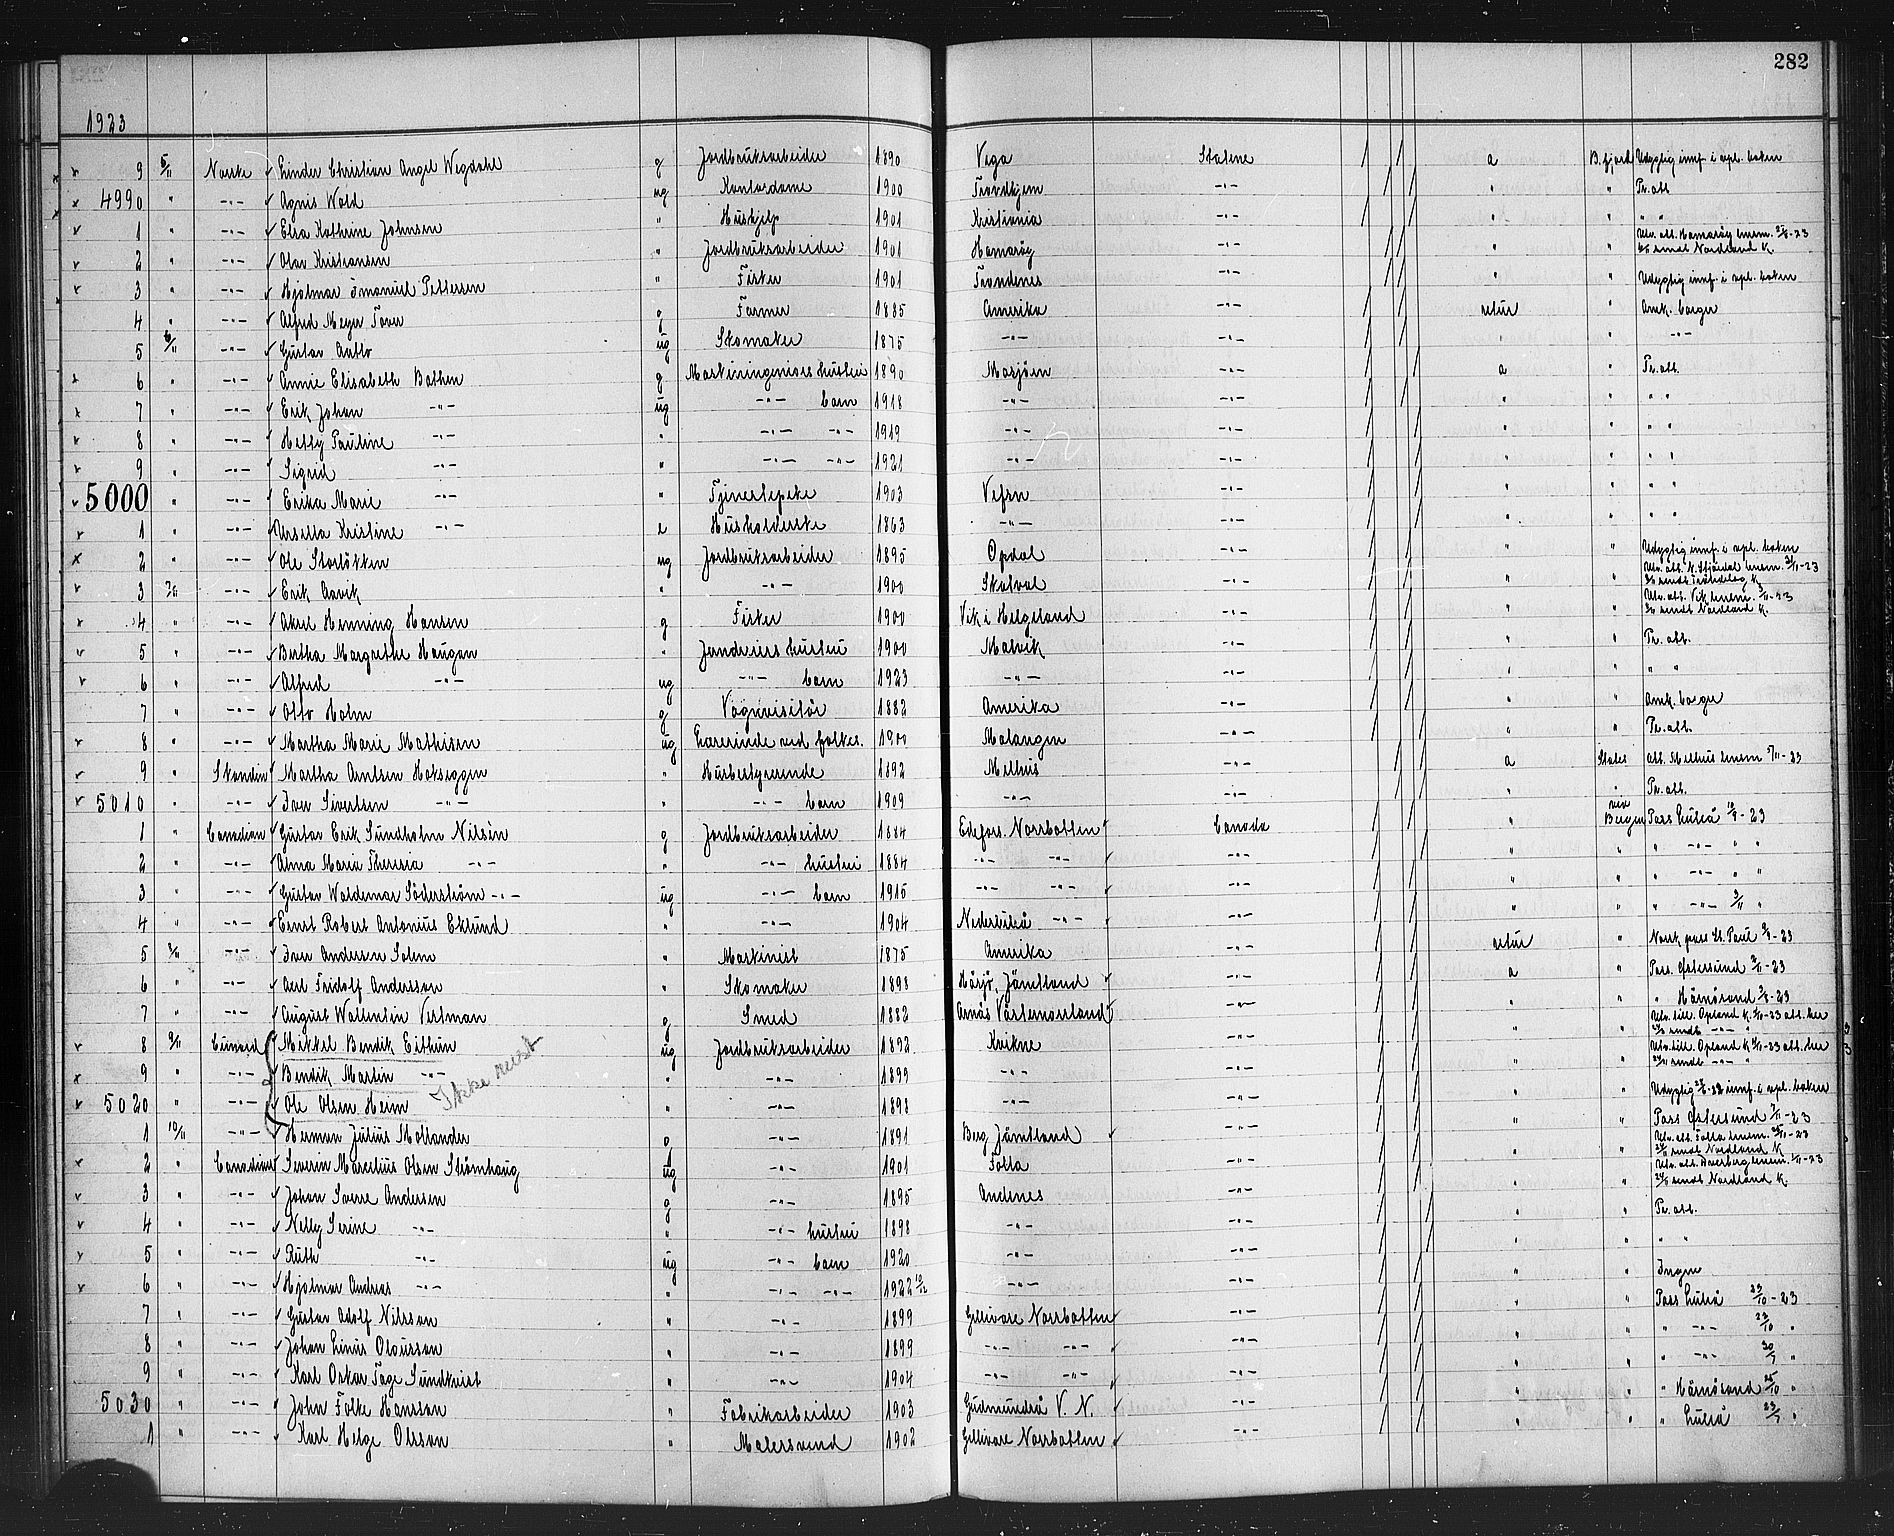 282
1923
9 5/11 Norske Einder Christian Angel Wegdahl g Jordbruksarbeider 1890 Vega Statene a B.fjord Udygtig innf. i spl. boken
4990 " -"- Agnis Wold ug Kontordame 1900 Trondhjem -"- " " Pr. att.
1 " -"- Elsa Kathrine Johnsen " Hushjelp 1901 Kristiania -"- " " " "
2 " -"- Olav Kristiansen " Jordbruksarbeider 1901 Hamarøy -"- " " Utv. att. Hamarøy lensm.
sendt Nordland K.
3 " -"- Hjalmar Imanuel Pettersen " Fisker 1901 Trondenes -"- " " Udygtig innf. i spl. boken
4 " -"- Alfred Meyer Tover g Farmer 1885 Amerika -"- retur " Amk. borger
5 6/11 -"- Gustav Aalto ug Skomaker 1875 -"- -"- " " -"-
6 " -"- Annie Elisabeth Bathen g Maskiningeniørs hustru 1890 Mosjøen -"- a " Pr. att.
7 " -"- Erik Johan -"- ug -"- barn 1918 -"- -"- " " " "
8 " -"- Hetty Pauline -"- " -"- -"- 1919 -"- -"- " " " "
9 " -"- Sigrid -"- " -"- -"- 1921 -"- -"- " " " "
5000 " -"- Erika Marie -"- " Tjenestepike 1903 Vefsn -"- " " " "
1 " -"- Ursella Kristine -"- e Husholderske 1863 -"- -"- " " " "
2 " -"- Ole Storløkken ug Jordbruksarbeider 1895 Opdal -"- " " Udygtig innf. i spl. boken
3 7/11 -"- Erik Aavik " -"- 1900 Skatval -"- " " Utv. att. N. Stjørdal lensm.
sendt Trøndelag K.
4 " -"- Aksel Henning Hansen g Fisker 1900 Vik i Helgeland -"- " " Utv. att. Vik lensm.
sendt Nordland K.
5 " -"- Bertha Margrethe Haugan " hustru 1900 Malvik -"- " " Pr. att.
6 " -"- Alfred -"- ug -"- barn 1923 -"- -"- " " " "
7 " -"- Otto Holm g Vognvisitør 1882 Amerika -"- " " Amk. borger
8 " -"- Martha Marie Mathisen ug Lærerinde ved folkes. 1900 Malangen -"- " " Pr. att.
9 " Skandin Martha Arntsen Hokseggen " Husbestyrerinde 1892 Melhus -"- a States att. Melhus lensm 5/11-23
5010 " -"- Iver Sivertsen -"- " -"- barn 1909 -"- -"- " " Pr. att.
1 " Canadian Gustav Erik Sundholm Nilsén g Jordbruksarbeider 1884 Edefors. Norrbotten Canada " via Bergen Pass Luleå 18/9-23
2 " -"- Alma Maria Theresia -"- " -"- hustru 1884 -"- -"- -"- " " " -"- " "
3 " -"- Gustav Waldemar Söderström -"- ug -"- barn 1915 -"- -"- -"- " " " -"- " "
4 " -"- Ernst Robert Antonius Eklund " -"- 1904 Nederluleå -"- -"- " " " -"- "
5 8/11 -"- Iver Andersen Solem " Maskinist 1875 Amerika -"- retur " Norsk pass St. Paul
6 " -"- Axel Fridolf Andersson " Skomaker 1898 Jämtland -"- a " Pass. Østersund 2/11-23
7 " -"- August Wallentin Vestman g Smed 1882 Arnäs Västernorrland -"- " " " Härnösand
8 9/11 Cunard Mikkel Bendik Eithun ug Jordbruksarbeider 1892 Kvikne -"- " " Utv. till. Opland K. att. her
sendt -"- "
9 " -"- Bendik Martin -"- " -"- 1899 -"- -"- " " Utv. till. Opland K. att. her
sendt -"- "
Ikke reist
5020 " -"- Ole Olsen Heim " -"- 1898 -"- -"- " " Udygtig innf. i spl. boken
1 10/11 -"- Herman Julius Mollander g -"- 1891 Berg Jämtland -"- " " Pass Østersund 7/11-23
2 " Canadian Severin Marcelius Olsen Strømhaug ug -"- 1901 Folla -"- " " Utv. att. Folla lensm.
sendt Nordland K
3 " -"- Johan Sverre Andersen g -"- 1895 Andenes -"- " " Utv. att. lensm.
sendt Nordland K.
4 " -"- Nelly Serine -"- " -"- hustru 1898 -"- -"- " " Pr. att.
5 " -"- Ruth -"- ug -"- barn 1920 -"- -"- " " " "
6 " -"- Hjalmar Andreas -"- " -"- -"- 1922 -"- -"- " " Ingen
7 " -"- Gustav Adolf Nilsson " -"- 1899 Gellivare Norrbotten -"- " " Pass Luleå 23/10-23
8 " -"- Johan Linus Olausson " -"- 1899 -"- -"- -"- " " " -"- 23/10 "
9 " -"- Karl Oskar Tage Sundkvist " -"- 1904 -"- -"- -"- " " " -"- "
5030 " -"- John Folke Hansson " Fabrikarbeider 1903 Gudmundrå V. N. -"- " " " Härnösand 25/10 "
1 " -"- Karl Helge Olsson " Malersvend 1902 Gellivare Norrbotten -"- " " " Luleå "